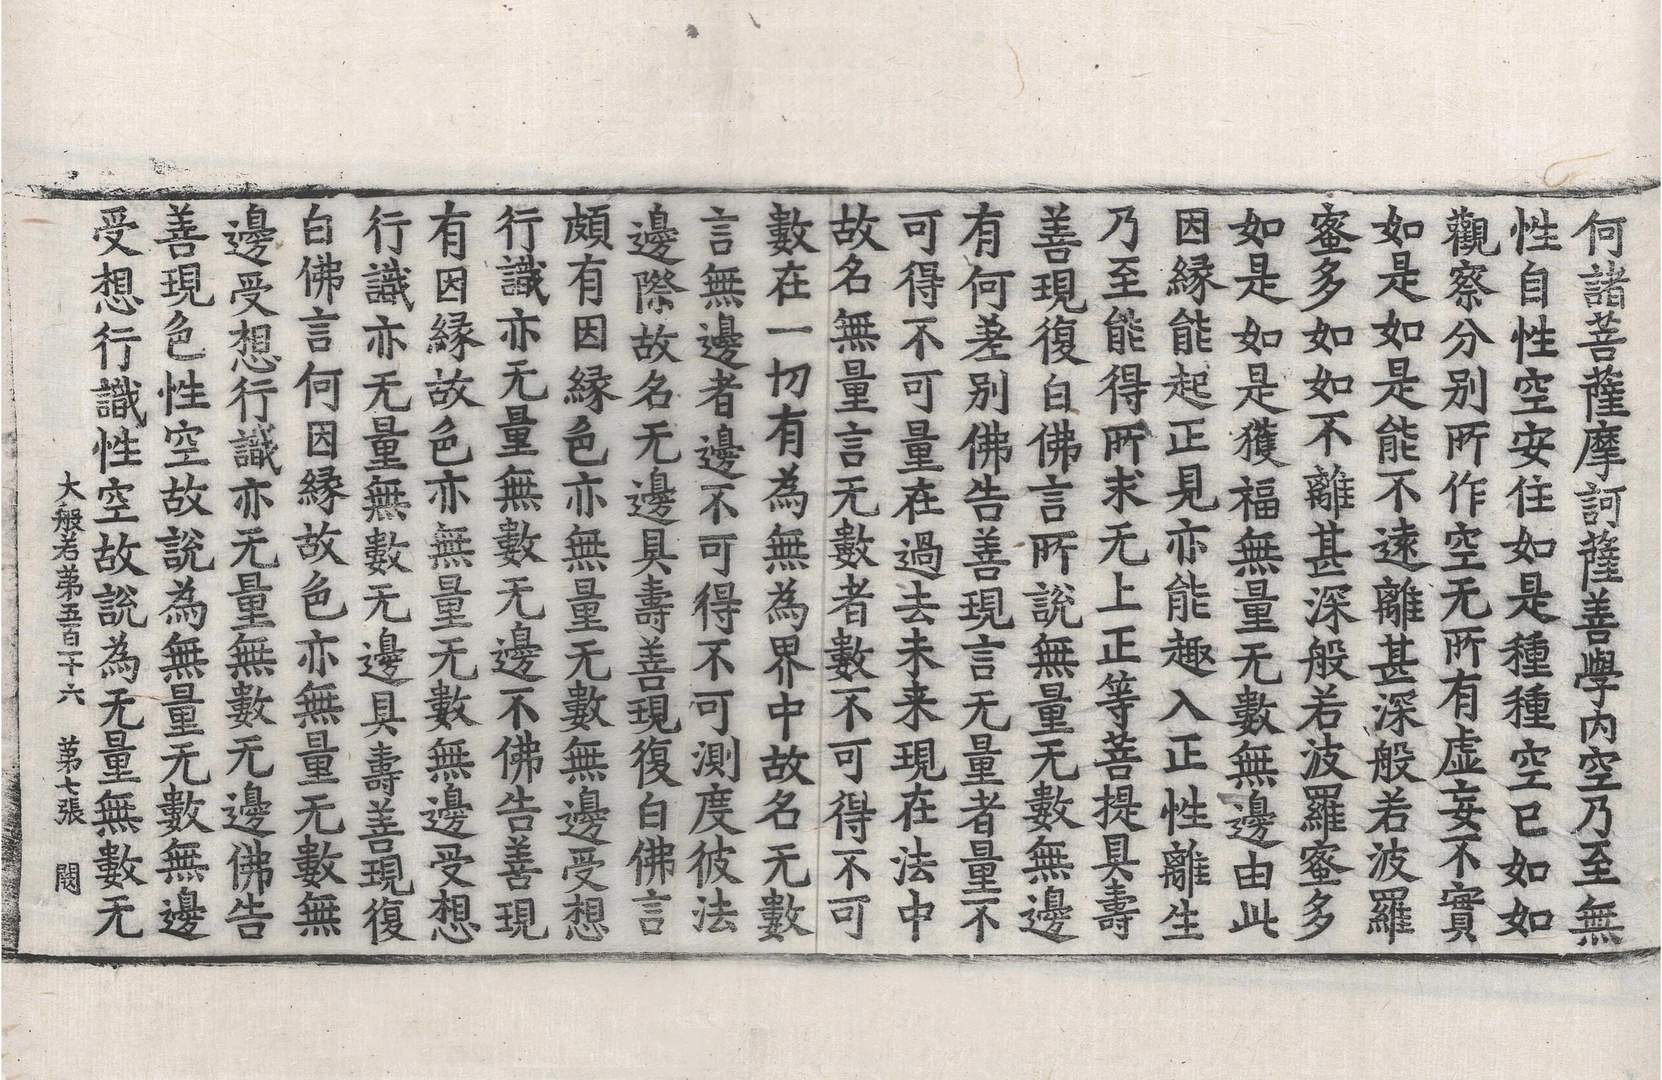 何諸菩薩摩訶薩善學内空乃至無
性自性空安住如是種種空已如如
觀察分別所作空无所有虚妄不實
如是如是能不遠離甚深般若波羅
蜜多如如不離甚深般若波羅蜜多
如是如是獲福無量无數無邊由此
因縁能起正見亦能趣入正性離生
乃至能得所求无上正等菩提具壽
善現復白佛言所說無量无數無邊
有何差別佛告善現言无量者量不
可得不可量在過去未来現在法中
故名無量言无數者數不可得不可
數在一切有為無為界中故名无數
言無邊者邊不可得不可測度彼法
邊際故名无邊具壽善現復白佛言
頗有因縁色亦無量无數無邊受想
行識亦无量無數无邊不佛告善現
有因縁故色亦無量无數無邊受想
行識亦无量無數无邊具壽善現復
白佛言何因縁故色亦無量无數無
邊受想行識亦无量無數无邊佛告
善現色性空故說為無量无數無邊
受想行識性空故說為无量無數无
大般若第五百一十六　第七張　閼